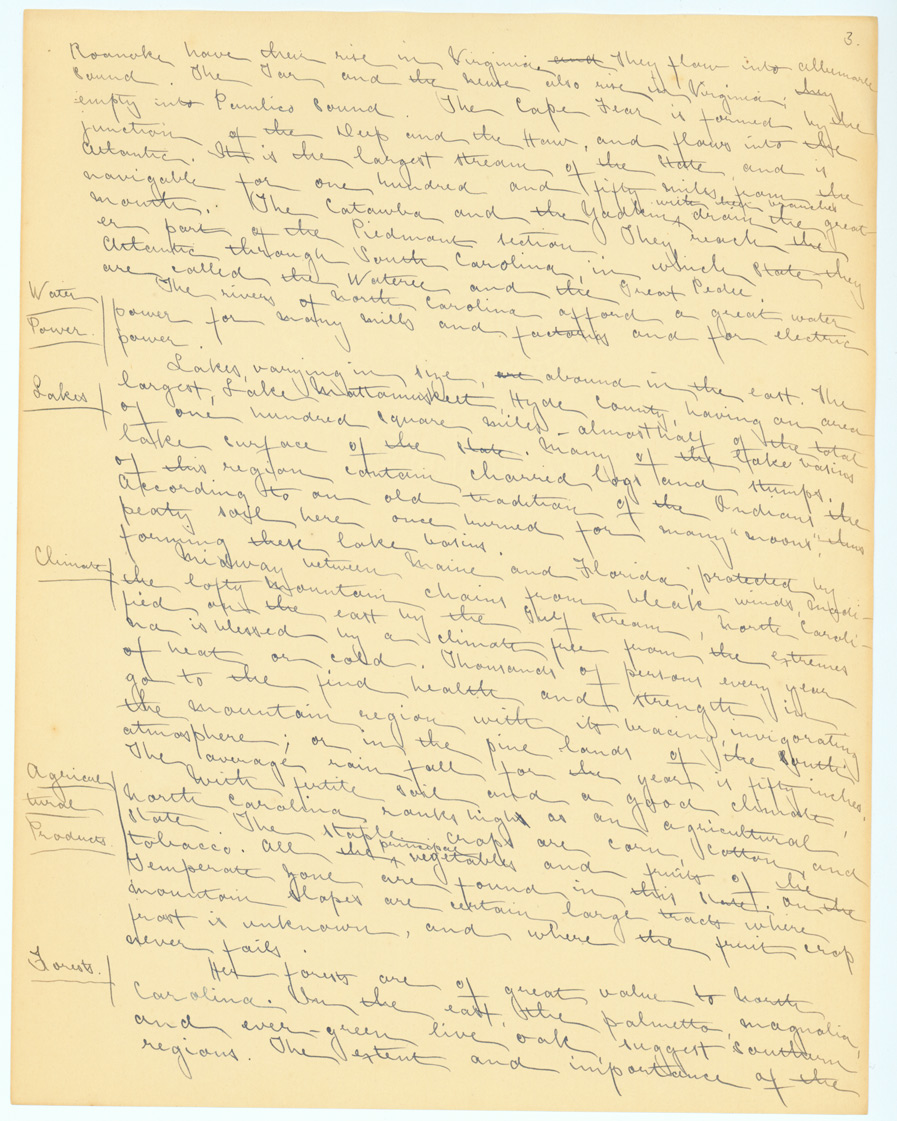 3.
Roanoke have their rise in Virginia. and They flow into Albemarle
Sound. The Tar and the Neuse also rise in Virginia; they
empty into Pamlico Sound. The Cape Fear is formed by the
junction of the Deep and the Haw, and flows into the
Atlantic. It is the largest stream of the State and is
navigable for one hundred and fifty miles from the
mouth. The Catawba and the Yadkin, with their branches drain the great-
er part of the Piedmont section. They reach the
Atlantic through South Carolina, in which State they
are called the Wateree and the Great Pedee.
Water
Power.
The rivers of North Carolina afford a great water
power for many mills and factories and for electric
power.
Lakes
Lakes, varying in size, are abound in the east. The
largest, Lake Mattamuskeet, Hyde County, having an area
of one hundred square miles - almost half of the total
lake surface of the state. Many of the lake basins
of this region contain charred logs and stumps.
According to an old tradition of the Indians the
peaty soil here once burned for many "moons", thus
forming these lake basins.
Climate
Midway between Maine and Florida, protected by
the lofty mountain chains from bleak winds, modi-
fied on the east by the Gulf Stream, North Caroli-
na is blessed by a climate free from the extremes
of heat or cold. Thousands of persons every year
go to the find health and strength in
the mountain region with its bracing, invigorating
atmosphere; or in the pine lands of the South.
The average rain fall for the year is fifty inches.
Agricul
tural
Products
With fertile soil and a good climate,
North Carolina ranks high as an agricultural
state. The staple crops are corn, cotton, and
tobacco. All the principal vegetables and fruits of the
Temperate zone are found in this State. On the
mountain slopes are certain large tracts where
frost is unknown, and where the fruit crop
never fails.
Forests.
Her forests are of great value to North
Carolina. In the east, the palmetto, magnolia,
and ever-green live oak, suggest southern
regions. The extent and importance of the